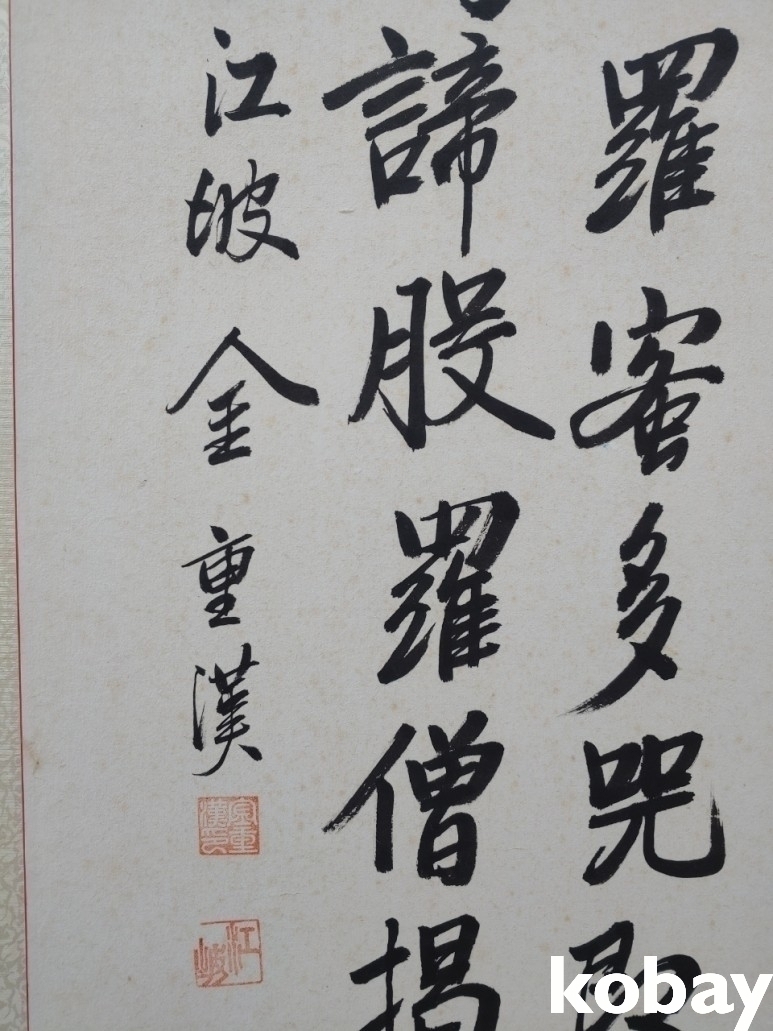 羅蜜多咒即
諦般羅僧揭
江坡 金重漢
金重漢印
江坡
kobay